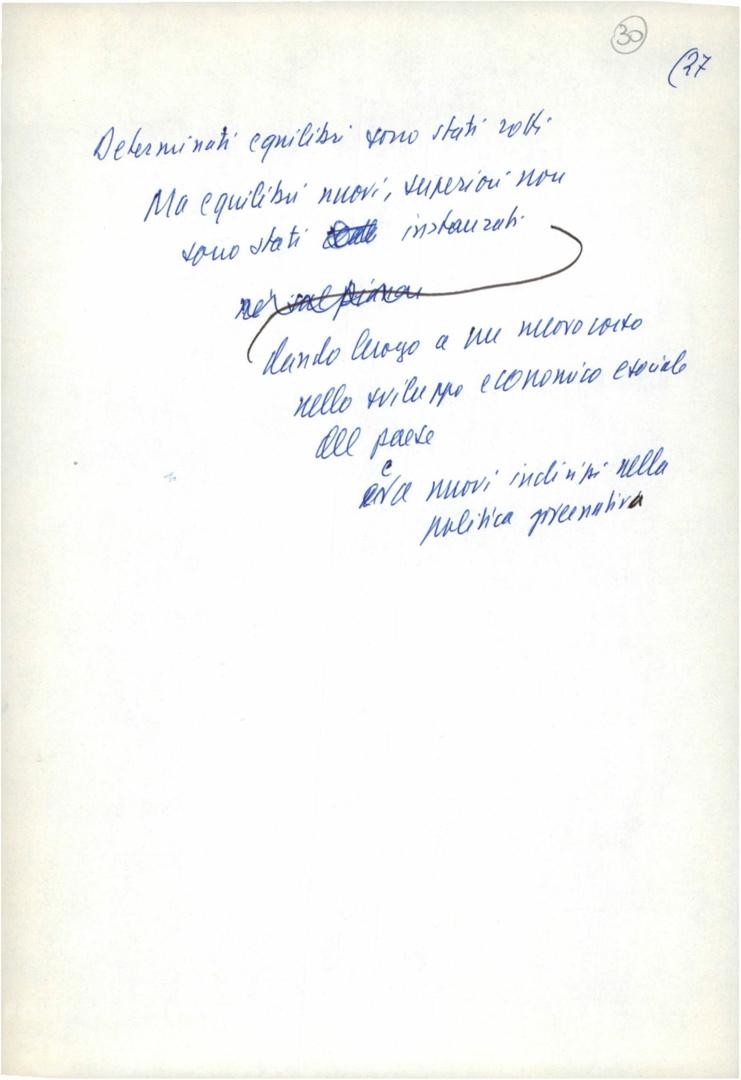 30
(27
Determinati equilibri sono stati rotti
Ma equilibri nuovi, superiori non
sono stati instaurati
né sul piano
dando luogo a un nuovo corso
nello sviluppo economico e sociale
del paese
e a nuovi indirizzi nella
politica governativa